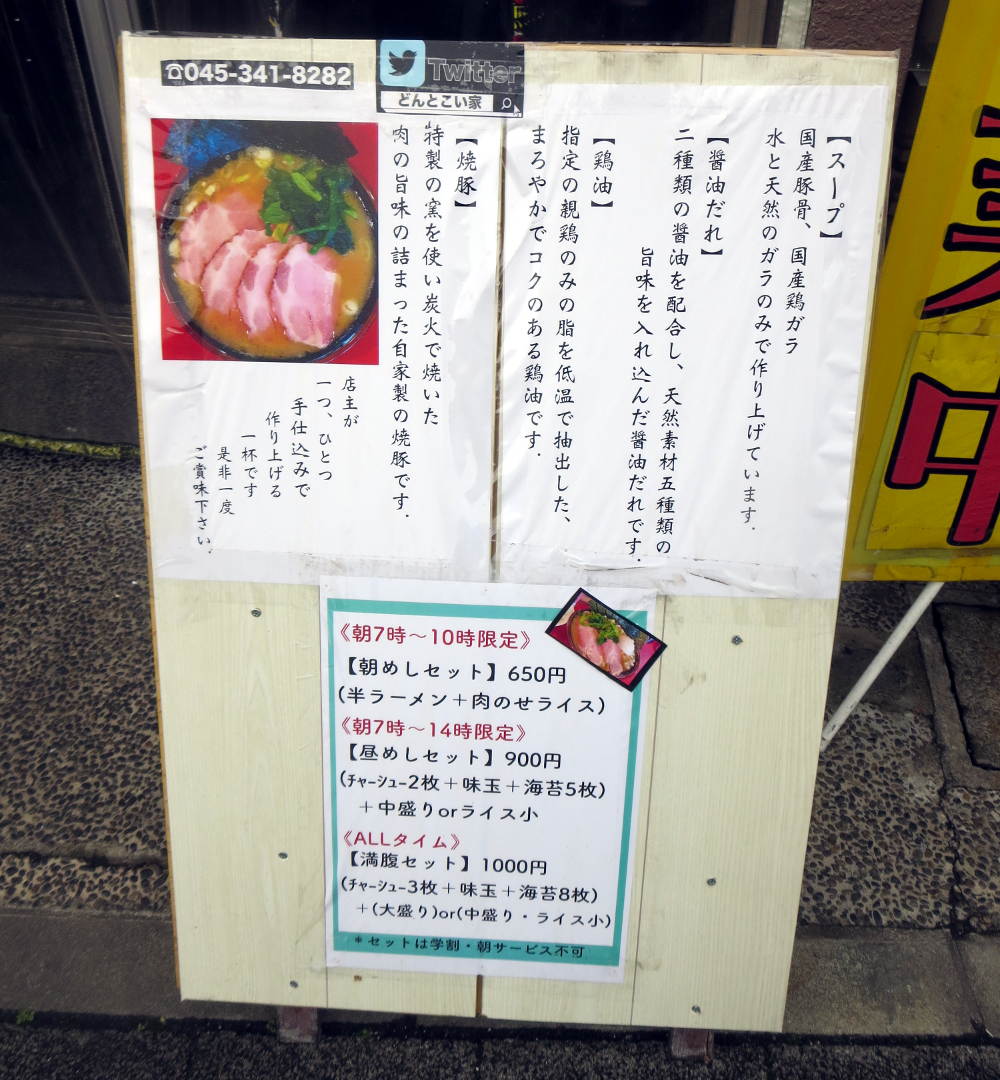 ☎045-341-8282
Twitter
どんとこい家
【スープ】
国産豚骨、国産鶏ガラ
水と天然のガラのみで作り上げています.
【醤油だれ】
二種類の醤油を配合し、天然素材五種類の
旨味を入れ込んだ醤油だれです.
【鶏油】
指定の親鶏のみの脂を低温で抽出した、
まろやかでコクのある鶏油です.
【焼豚】
特製の窯を使い炭火で焼いた
肉の旨味の詰まった自家製の焼豚です.
店主が
一つ、ひとつ
手仕込みで
作り上げる
一杯です
是非一度
ご賞味下さい.
《朝7時～10時限定》
【朝めしセット】650円
(半ラーメン＋肉のせライス)
《朝7時～14時限定》
【昼めしセット】900円
(ﾁｬｰｼｭｰ2枚＋味玉＋海苔5枚)
＋中盛りorライス小
《ALLタイム》
【満腹セット】1000円
(ﾁｬｰｼｭｰ3枚＋味玉＋海苔8枚)
＋(大盛り)or(中盛り・ライス小)
＊セットは学割・朝サービス不可
中